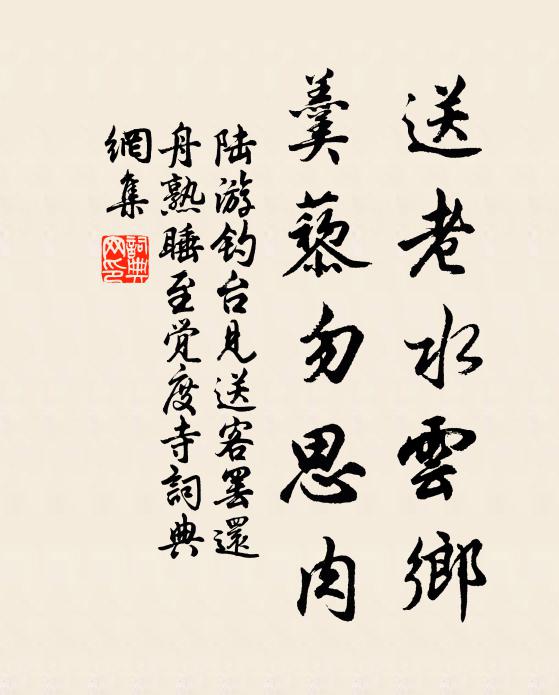 送老水雲鄉
羹藜勿思肉
陆游钓台见送客罢還
舟熟睡至觉度寺詞典
網集
詞典
网印